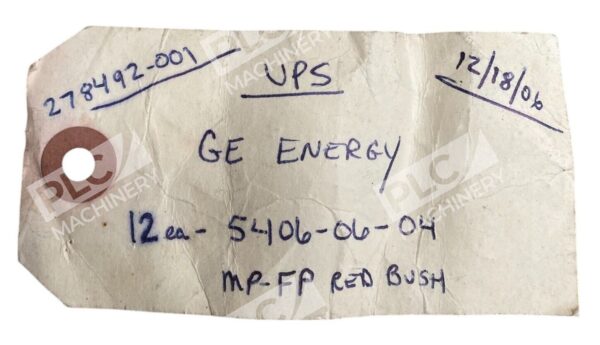 278492-001
UPS
12/18/06
GE ENERGY
12ea- 5406-06-04
MP-FP RED BUSH
PLC MACHINERY
PLC MACHINERY
PLC MACHINERY